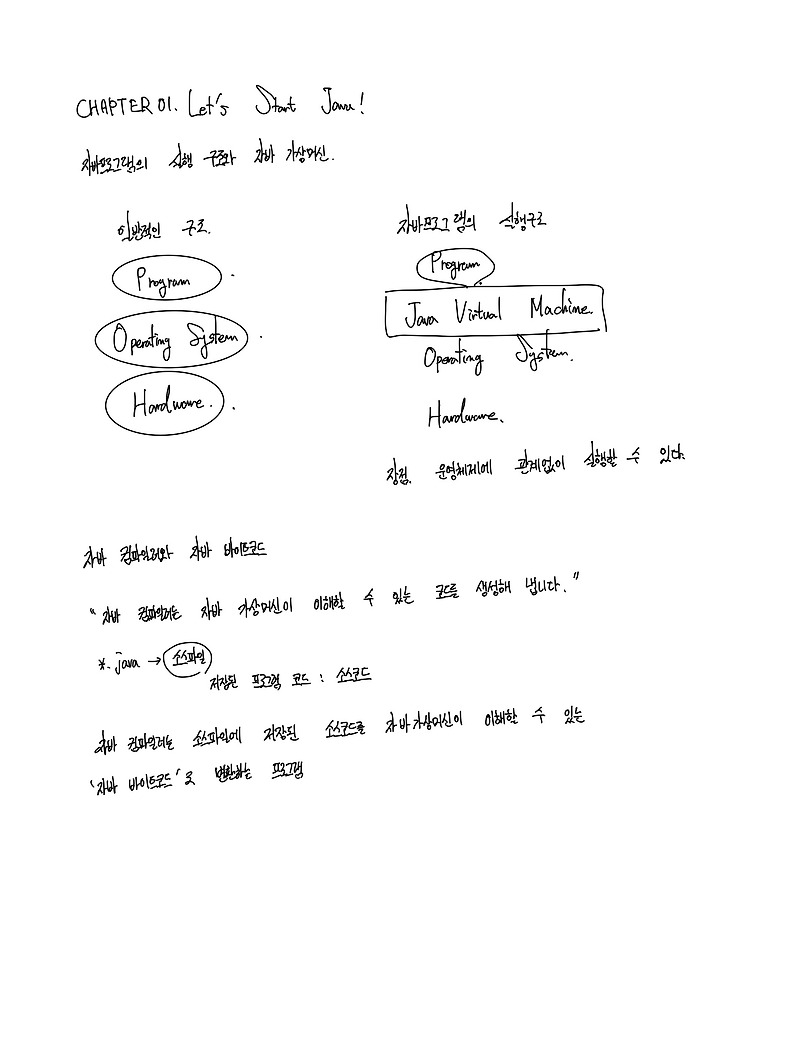 CHAPTER 01. Let's Start Java!
자바프로그램의 실행 구조와 자바 가상머신.
일반적인 구조.
Program
Operating System
Hardware.
자바프로그램의 실행구조
Program
Java Virtual Machine.
Operating System.
Hardware.
장점. 운영체제에 관계없이 실행할 수 있다.
자바 컴파일러와 자바 바이트코드
"자바 컴파일러는 자바 가상머신이 이해할 수 있는 코드를 생성해 냅니다."
*. java → 소스파일
저장된 프로그램 코드 : 소스코드
자바 컴파일러는 소스파일에 저장된 소스코드를 자바가상머신이 이해할 수 있는
'자바 바이트코드'로 변환하는 프로그램